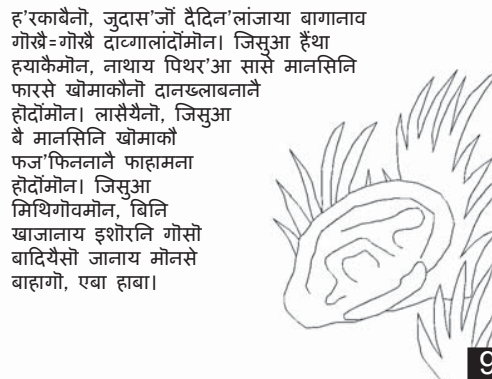 ह'रकाबैनॊ, जुदास'जॊं दैदिन'लांजाया बागानाव
गॊख्रै=गॊख्रै दाव्गालांदॊंमॊन। जिसुआ हैंथा
हयाकैमॊन, नाथाय पिथर'आ सासे मानसिनि
फारसे खॊमाकौनॊ दानख्लाबनानै
हॊदॊंमॊन। लासैयैनॊ, जिसुआ
बै मानसिनि खॊमाकौ
फज'फिननानै फाहामना
हॊदॊंमॊन। जिसुआ
मिथिगॊवमॊन, बिनि
खाजानाय इशॊरनि गॊसॊ
बादियैसॊ जानाय मॊनसे
बाहागॊ, एबा हाबा।
9